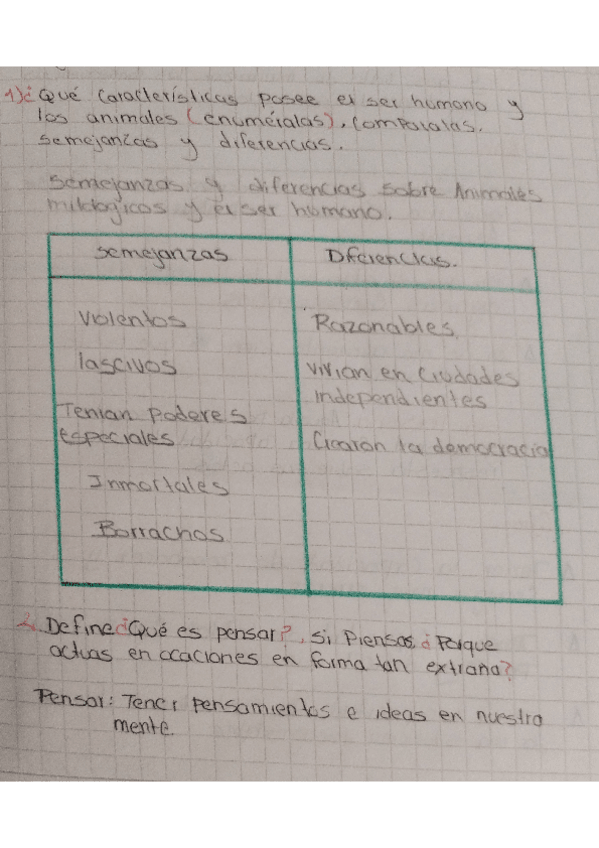 1) ¿Qué Características posee el ser humano y
los animales (enuméralas), Comparalas.
semejanzas y diferencias.
Semejanzas y diferencias sobre Animales
mitologicos y el ser humano.
semejanzas
Dferencias.
Violentos
Razonables
lascivos
vivian en Ciudades
independientes
Tenian poderes
especiales
Crearon la democracia
Inmortales
Borrachos
2. Define ¿Qué es pensar?, si Piensas, ¿Porque
actuas en ocaciones en forma tan extraña?
Pensar: Tener pensamientos e ideas en nuestra
mente.